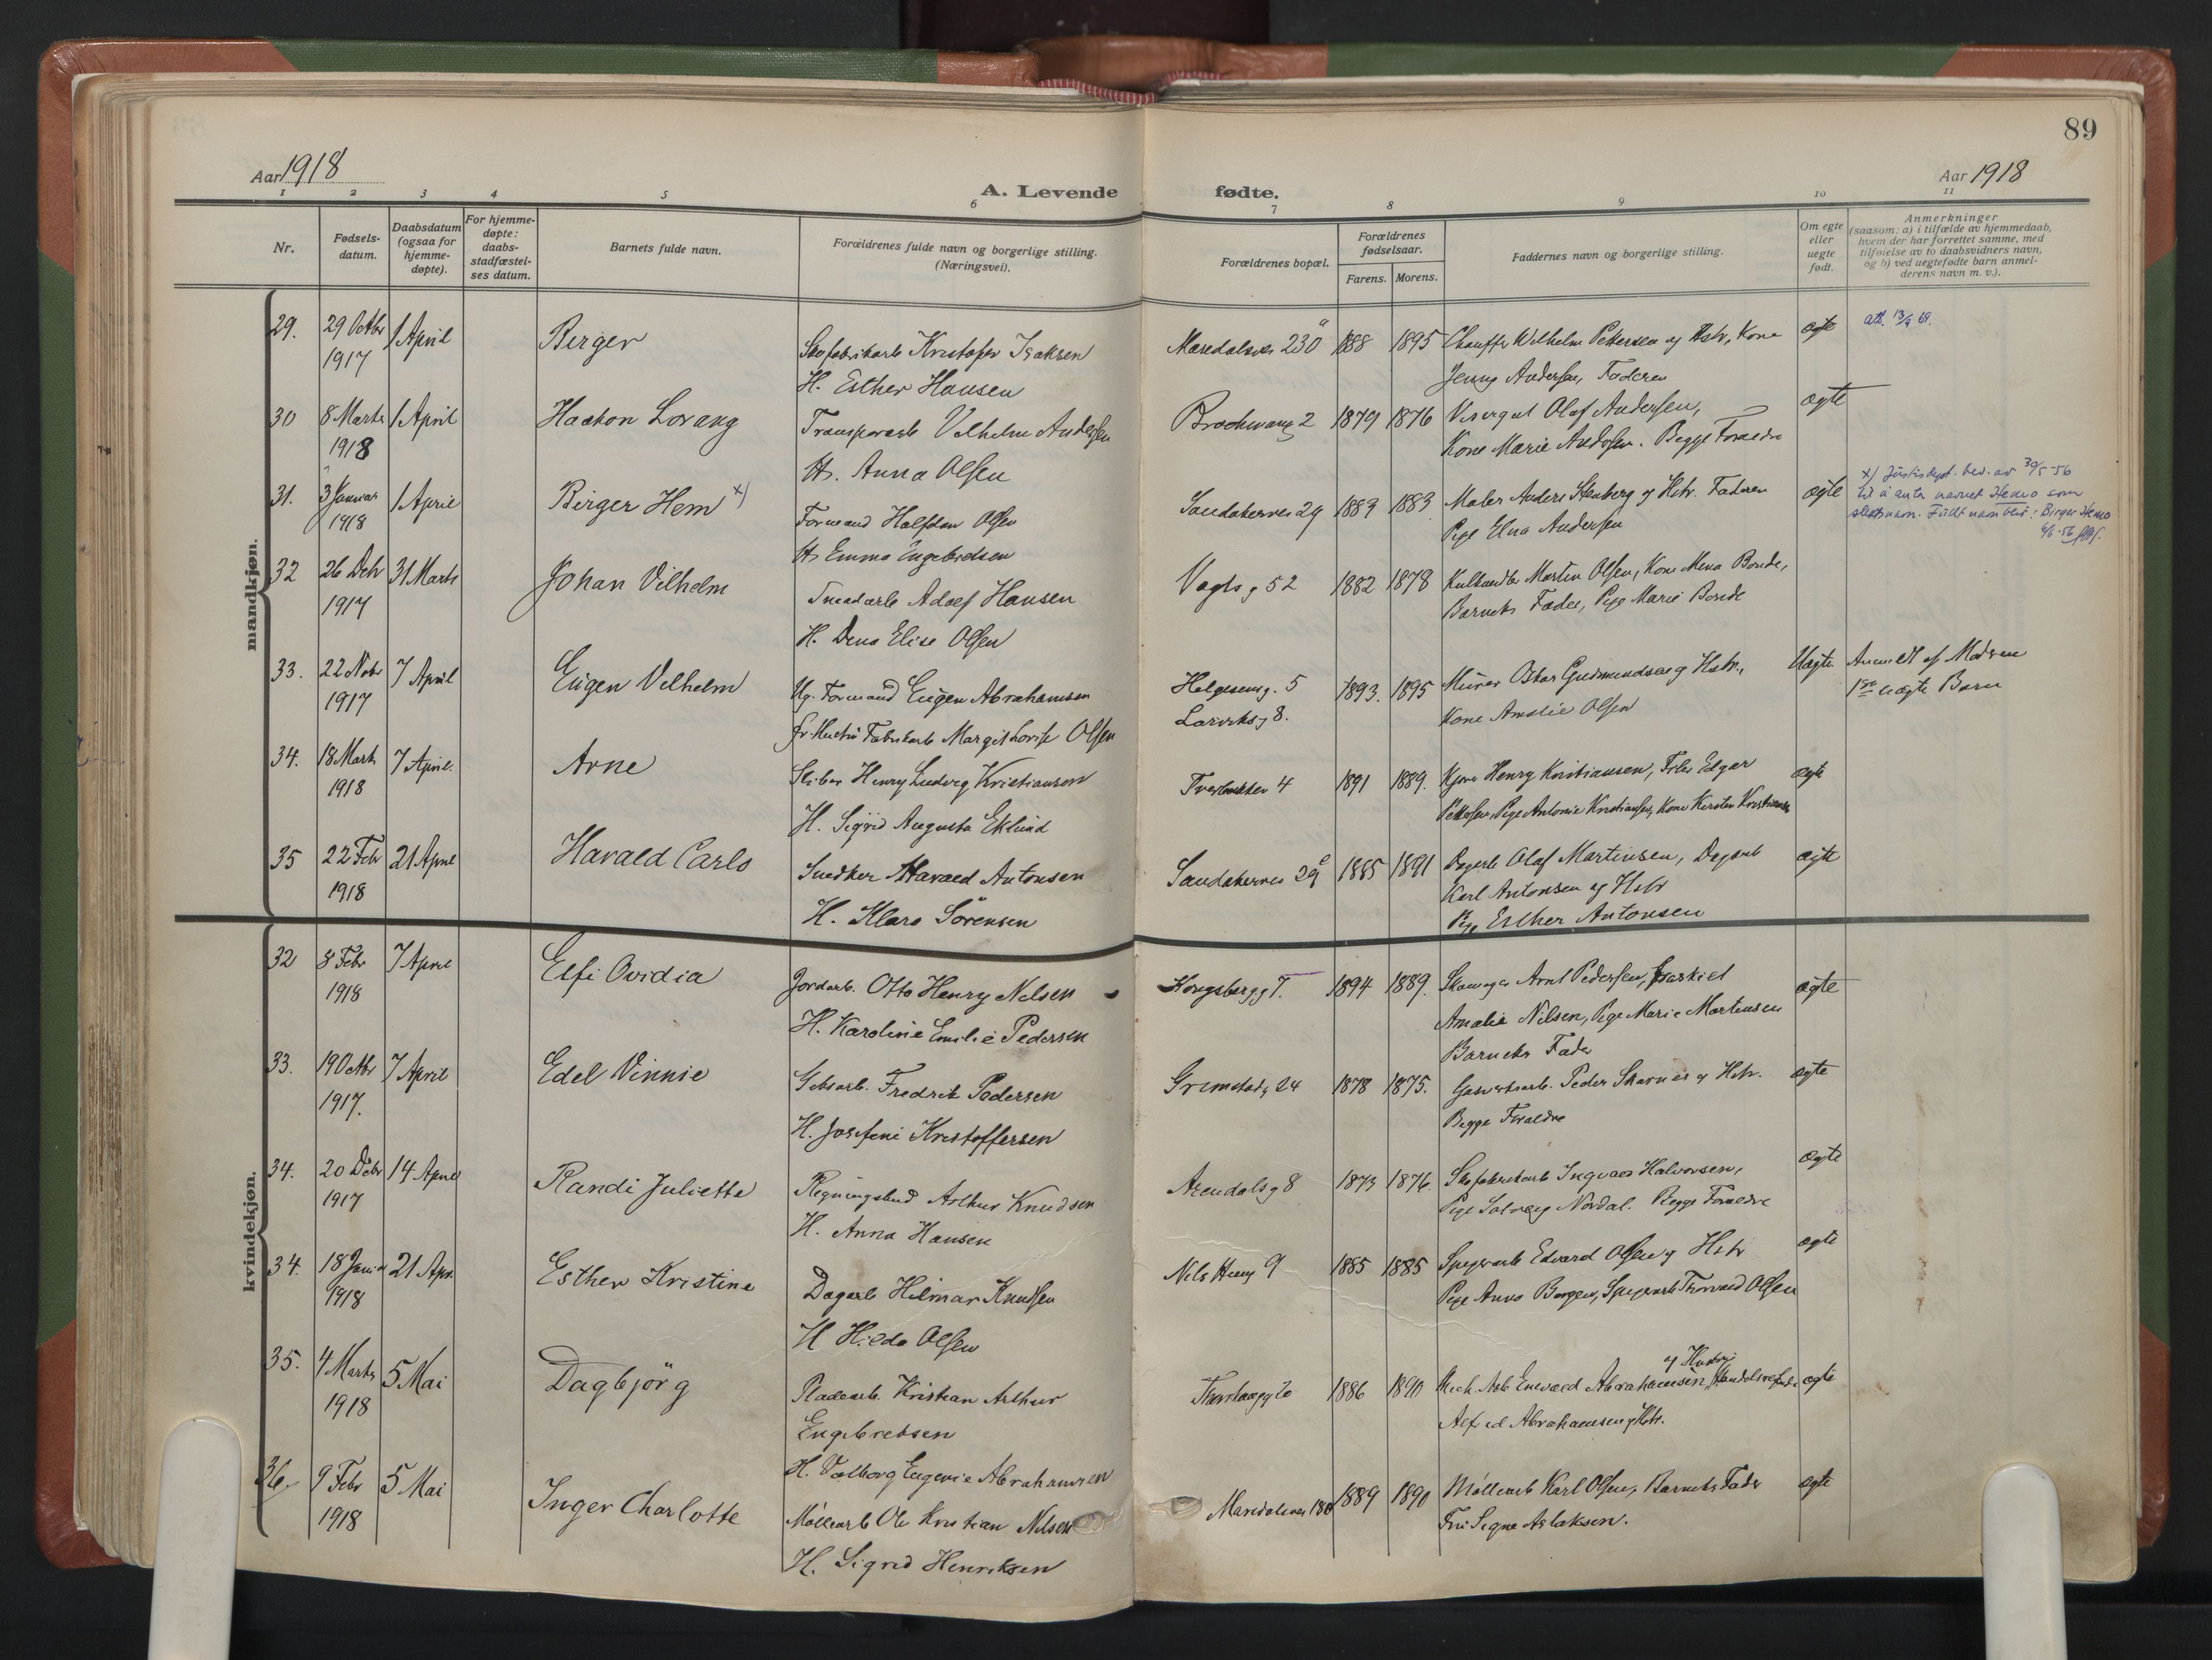 89
Aar 1918
A. Levende fødte.
Aar 1918
1 2 3 4 5 6 7 8 9 10 11
Nr.
Fødsels-
datum.
Daabsdatum
(ogsaa for
hjemme-
døpte).
For hjemme-
døpte:
daabs-
stadfæstel-
ses datum.
Barnets fulde navn.
Forældrenes fulde navn og borgerlige stilling.
(Næringsvei).
Forældrenes bopæl.
Forældrenes
fødselsaar.
Farens. Morens.
Faddernes navn og borgerlige stilling.
Om egte
eller
uegte
født.
Anmerkninger
(saasom: a) i tilfælde av hjemmedaab,
hvem der har forrettet samme, med
tilføielse av to daabsvidners navn,
og b) ved uegtefødte barn anmel-
derens navn m. v.).
mandkjøn.
29. 29 Octbr 1 April Birger Skofabrikarb Kristofer Isaksen Maridalsvei 230 a 1888 1895 Chauffr Wilhelm Pettersen og Hstr, Kone ægte att. 13/9 69.
1917 H. Esther Hansen Jenny Andersen, Faderen
30 8 Marts 1 April Haakon Lorang Transporarb Vilhelm Andersen 2 1879 1876 Visergut Olaf Andersen, ægte
1918 H. Anna Olsen Kone Marie Andersen. Begge Forældre
31. 3 Januar 1 April Birger Hem x) Formand Halfdan Olsen Sandakerveien 29 1883 1883 Maler Anders Stenberg og Hstr. Faderen ægte x) Justisdept. bev. av 30/5-56
1918 H. Emma Engebretsen Pige Elna Andersen til å anta navnet Hemo som
slektsnavn. Fullt navn blir: Birger Hemo
6/6-56
32 26 Debr 31 Marts Johan Vilhelm Adolf Hansen Vogts g 52 1882 1878 Martin Olsen, Kone Mena Bonde,
1917 H. Dena Elise Olsen Barnets Fader, Pige Marie Bonde
33. 22 Nobr 7 April Eugen Vilhelm Ug. Formand Eugen Abrahamsen Helgesensg. 5 1893. 1895 Murer Oskar Gudmundsen og Hstr., Uægte Anmeldt af Modren
1917 Fabrikarb Margit Lovise Olsen Larviksg 8. Kone Amalie Olsen 1ste uægte Barn
34. 18 Marts 7 April. Arne Sliber Henry Ludvig Kristiansen Tverbakken 4 1891 1889. Henry Kristiansen, Edgar ægte
1918 H. Sigrid Augusta Eklund Pettersen, Pige Antonie Kristiansen, Kone Kirsten Kristiansen
35 22 Febr 21 April Harald Carlo Snedker Harald Antonsen Sandakerveien 29 c 1885 1891 Dagarb Olaf Martinsen, Dagarb ægte
1918 H. Klara Sørensen Karl Antonsen og Hstr
Pige Esther Antonsen
kvindekjøn.
32 8 Febr 7 April Elfi Ovidia Jordarb. Otto Henry Nelsen Kongsbergg 7. 1894 1889. Skomager Arnt Pedersen, ægte
1918 H. Karoline Emilie Pedersen Amalie Nilsen, Pige Marie Martinsen
Barnets Fader
33. 19 Octbr 7 April Edel Vinnie Gibsarb. Fredrik Pedersen Grimstadg 24 1878 1875. Gasverksarb. Peder Skarnes og Hstr. ægte
1917. H. Josefine Kristoffersen Begge Forældre
34. 20 Debr 14 April Randi Juliette Regningsbud Arthur Knudsen Arendalsg 8 1873 1876. Skofabrikarb Ingvald Halvorsen, ægte
1917 H. Anna Hansen Pige Solveig Nordal. Begge Forældre
34. 18 Januar 21 Apr. Esther Kristine Dagarb Hilmar Knudsen Nils 9 1885 1885 Edvard Olsen og Hstr ægte
1918 H Hilda Olsen Pige Anna Borgen, Thorvald Olsen
35. 4 Marts 5 Mai Dagbjörg Pladearb. Kristian Arthur Thorshaugg 20 1886 1890 Mech. Arb Enevald Abrahamsen og Hustru, ægte
1918 Engebretsen Alfred Abrahamsen og Hstr.
H. Valborg Eugenie Abrahamsen
36. 9 Febr 5 Mai Inger Charlotte Møllearb Ole Kristian Nilsen Maridalsvei 180 1889 1890 Møllearb Karl Olsen, Barnets Fader ægte
1918 H. Sigrid Henriksen Fru Signe Aslaksen.